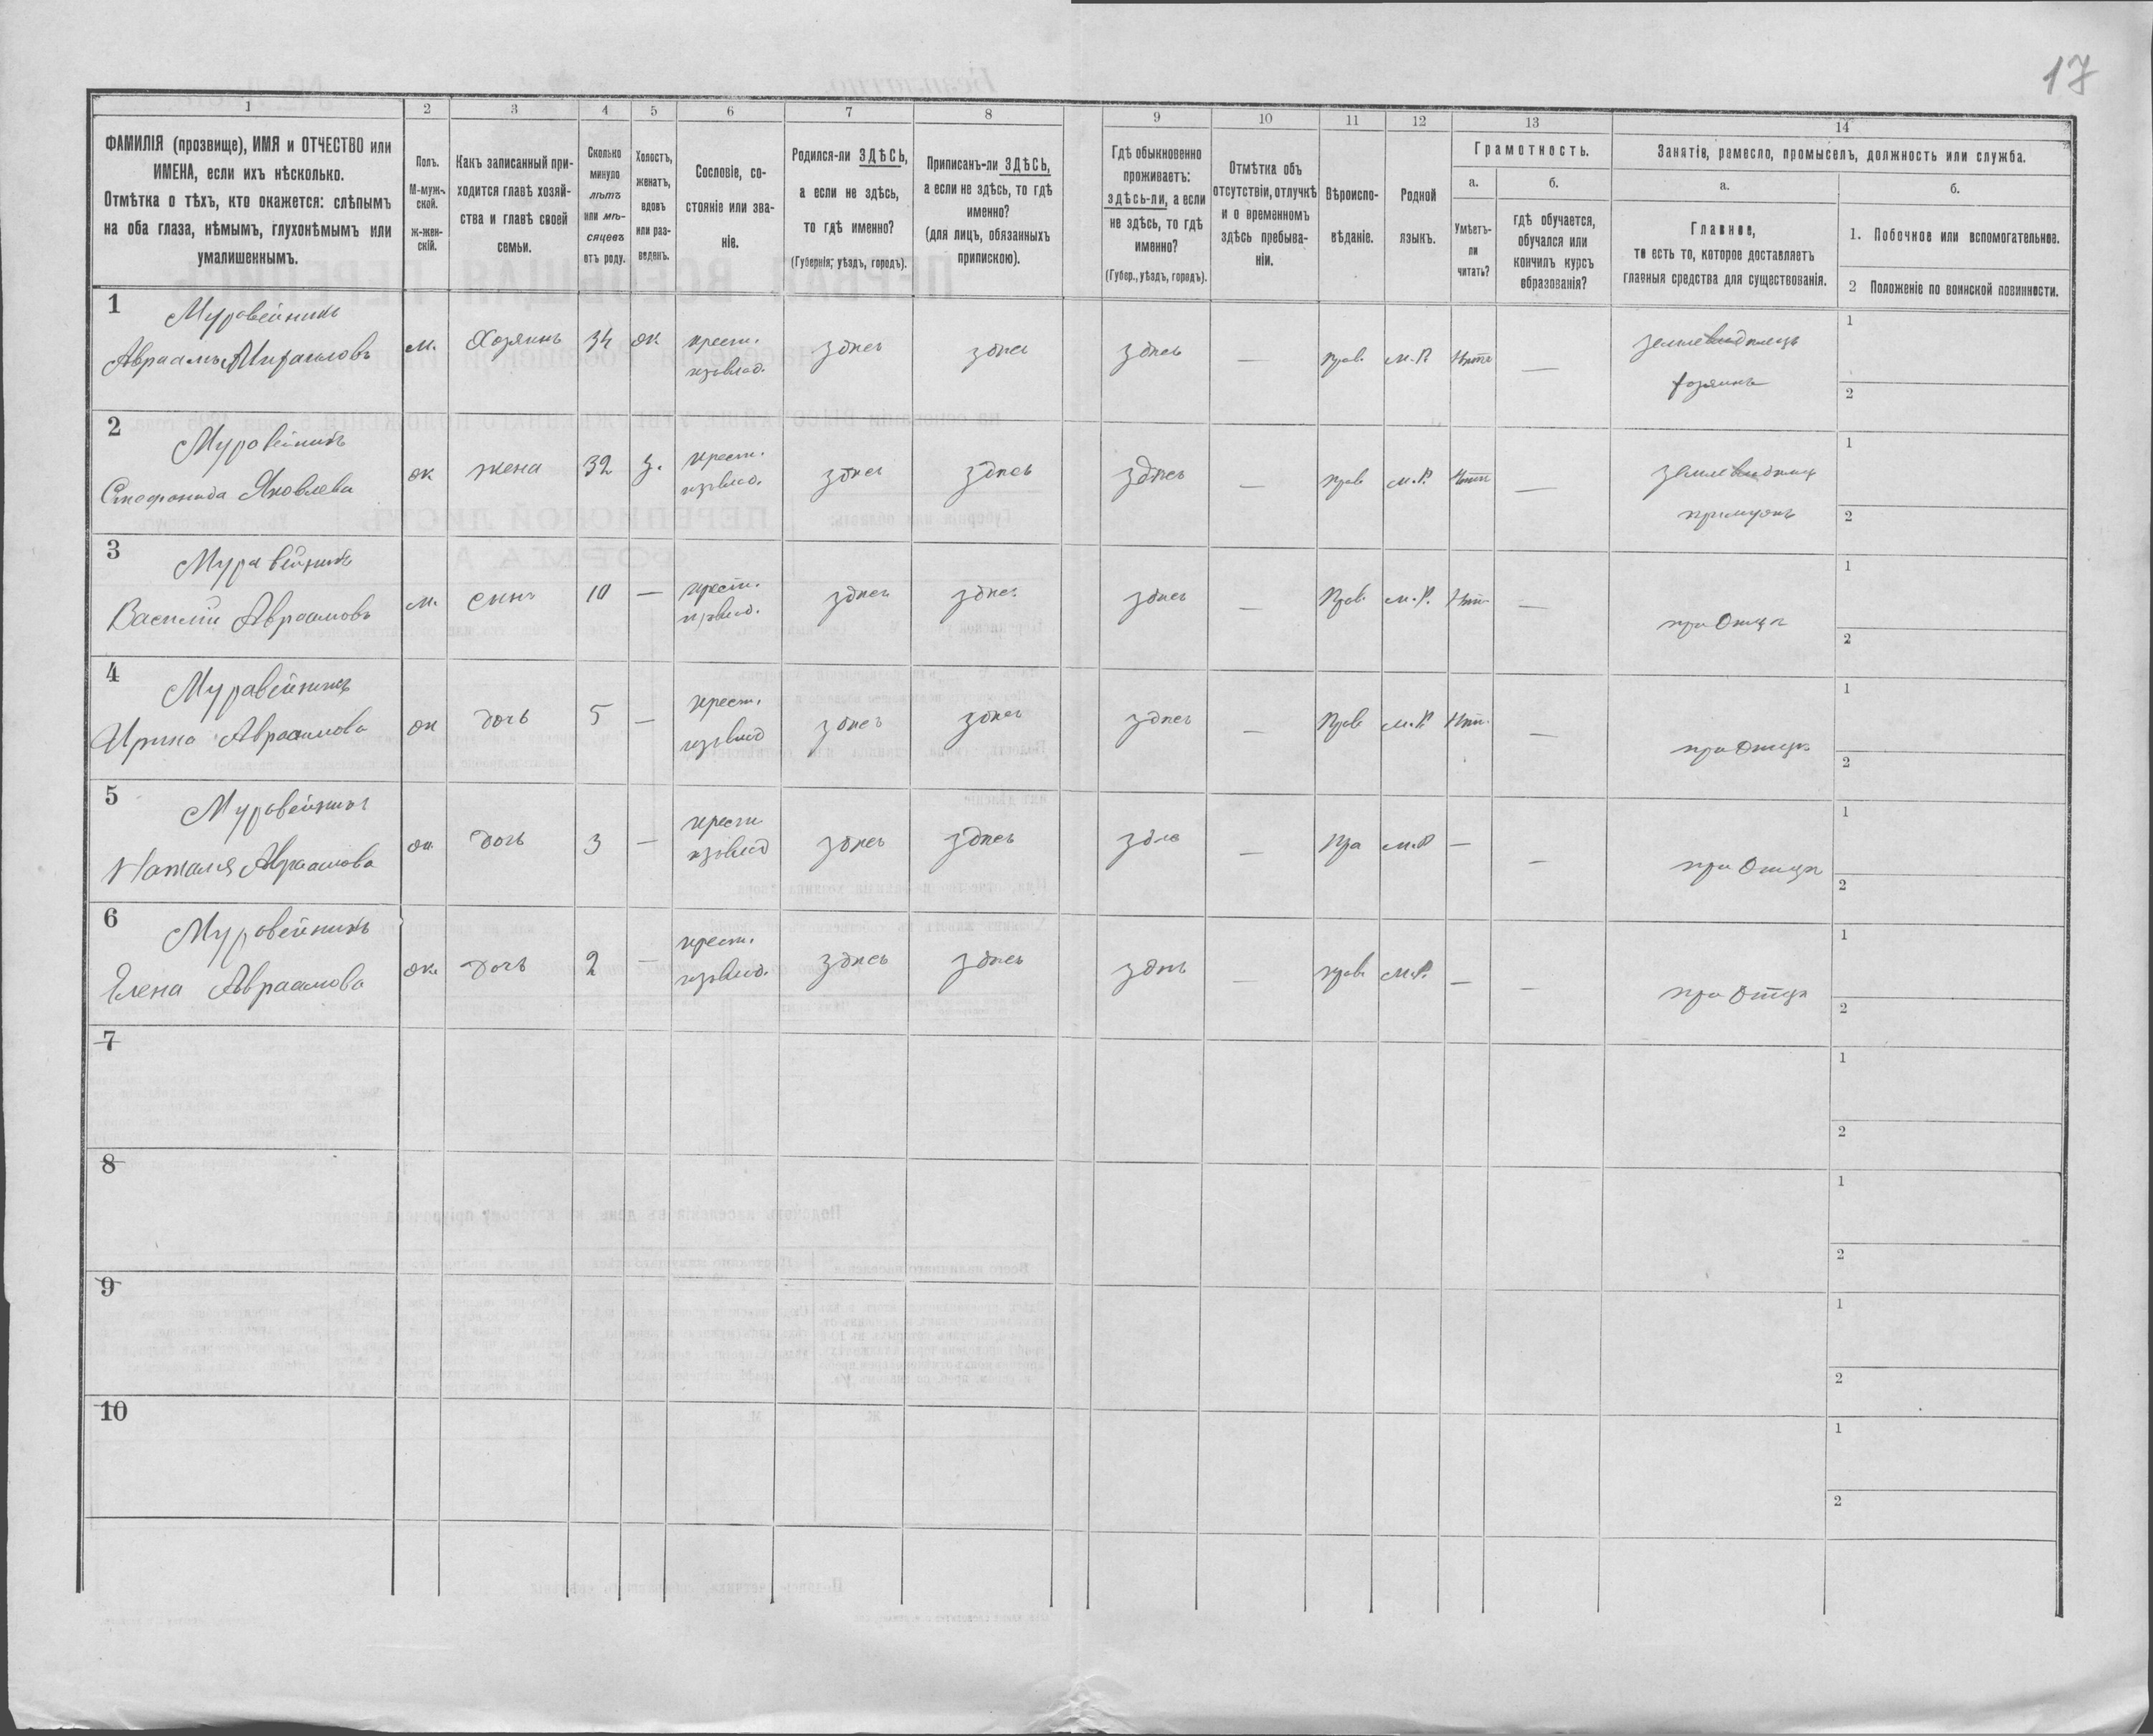 17
1 2 3 4 5 6 7 8 9 10 11 12 13 14
ФАМИЛІЯ (прозвище), ИМЯ и ОТЧЕСТВО или
ИМЕНА, если ихъ нѣсколько.
Отмѣтка о тѣхъ, кто окажется: слѣпымъ
на оба глаза, нѣмымъ, глухонѣмымъ или
умалишеннымъ.
Полъ.
М-муж-
ской.
ж-жен-
скій.
Какъ записанный при-
ходится главѣ хозяй-
ства и главѣ своей
семьи.
Сколько
минуло
лѣтъ
или мѣ-
сяцевъ
отъ роду.
Холостъ,
женатъ,
вдовъ
или раз-
веденъ.
Сословіе, со-
стояніе или зва-
ніе.
Родился-ли ЗДѢСЬ,
а если не здѣсь,
то гдѣ именно?
(Губернія, уѣздъ, городъ).
Приписанъ-ли ЗДѢСЬ,
а если не здѣсь, то гдѣ
именно?
(для лицъ, обязанныхъ
припискою).
Гдѣ обыкновенно
проживаетъ:
здѣсь-ли, а если
не здѣсь, то гдѣ
именно?
(Губер., уѣздъ, городъ).
Отмѣтка объ
отсутствіи, отлучкѣ
и о временномъ
здѣсь пребыва-
ніи.
Вѣроиспо-
вѣданіе.
Родной
языкъ.
Грамотность.
а.
Умѣетъ-
ли
читать?
б.
гдѣ обучается,
обучался или
кончилъ курсъ
образованія?
Занятіе, ремесло, промыселъ, должность или служба.
а.
Главное,
то есть то, которое доставляетъ
главныя средства для существованія.
б.
1. Побочное или вспомогательное.
2 Положеніе по воинской повинности.
1 Муравейникъ
Авраамъ Михаиловъ м. Хозяинъ 34 ж крест. здѣсь здѣсь здѣсь — прав. м.Р. Нѣтъ — земле
хозяинъ
1
2
2 Муравейникъ
Степанида Яковлева ж жена 32 з. крест. здѣсь здѣсь здѣсь — прав м.Р. Нѣтъ — земле
при мужѣ
1
2
3 Муравейникъ
Василій Авраамовъ м. сынъ 10 — крест. здѣсь здѣсь здѣсь — Прав. м.Р. Нѣт — при Отцѣ
1
2
4 Муравейникъ
Ирина Авраамова ж дочь 5 — крест. здѣсь здѣсь здѣсь — Прав м.Р Нѣт. — при Отцѣ
1
2
5 Муравейникъ
Наталія Авраамова ж дочь 3 — крест здѣсь здѣсь здѣсь — Пра м.Р — — при Отцѣ
1
2
6 Муравейникъ
Елена Авраамова ж. дочь 2 — крест. здѣсь здѣсь здѣсь — прав м.Р. — — при Отцѣ
1
2
7
1
2
8
1
2
9
1
2
10
1
2